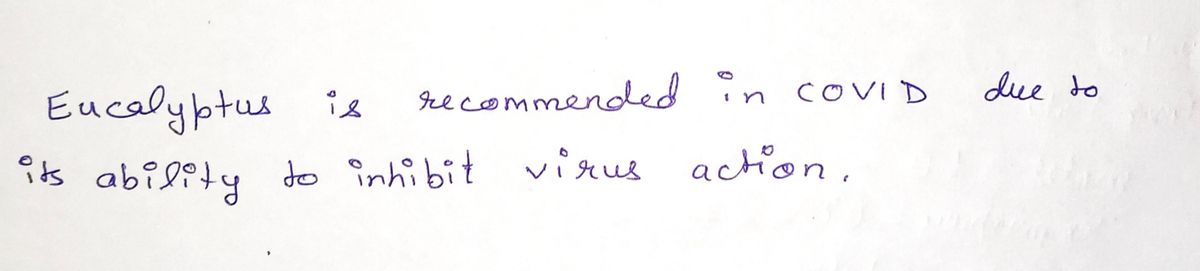 Eucalyptus is recommended in COVID due to
its ability to inhibit virus action.